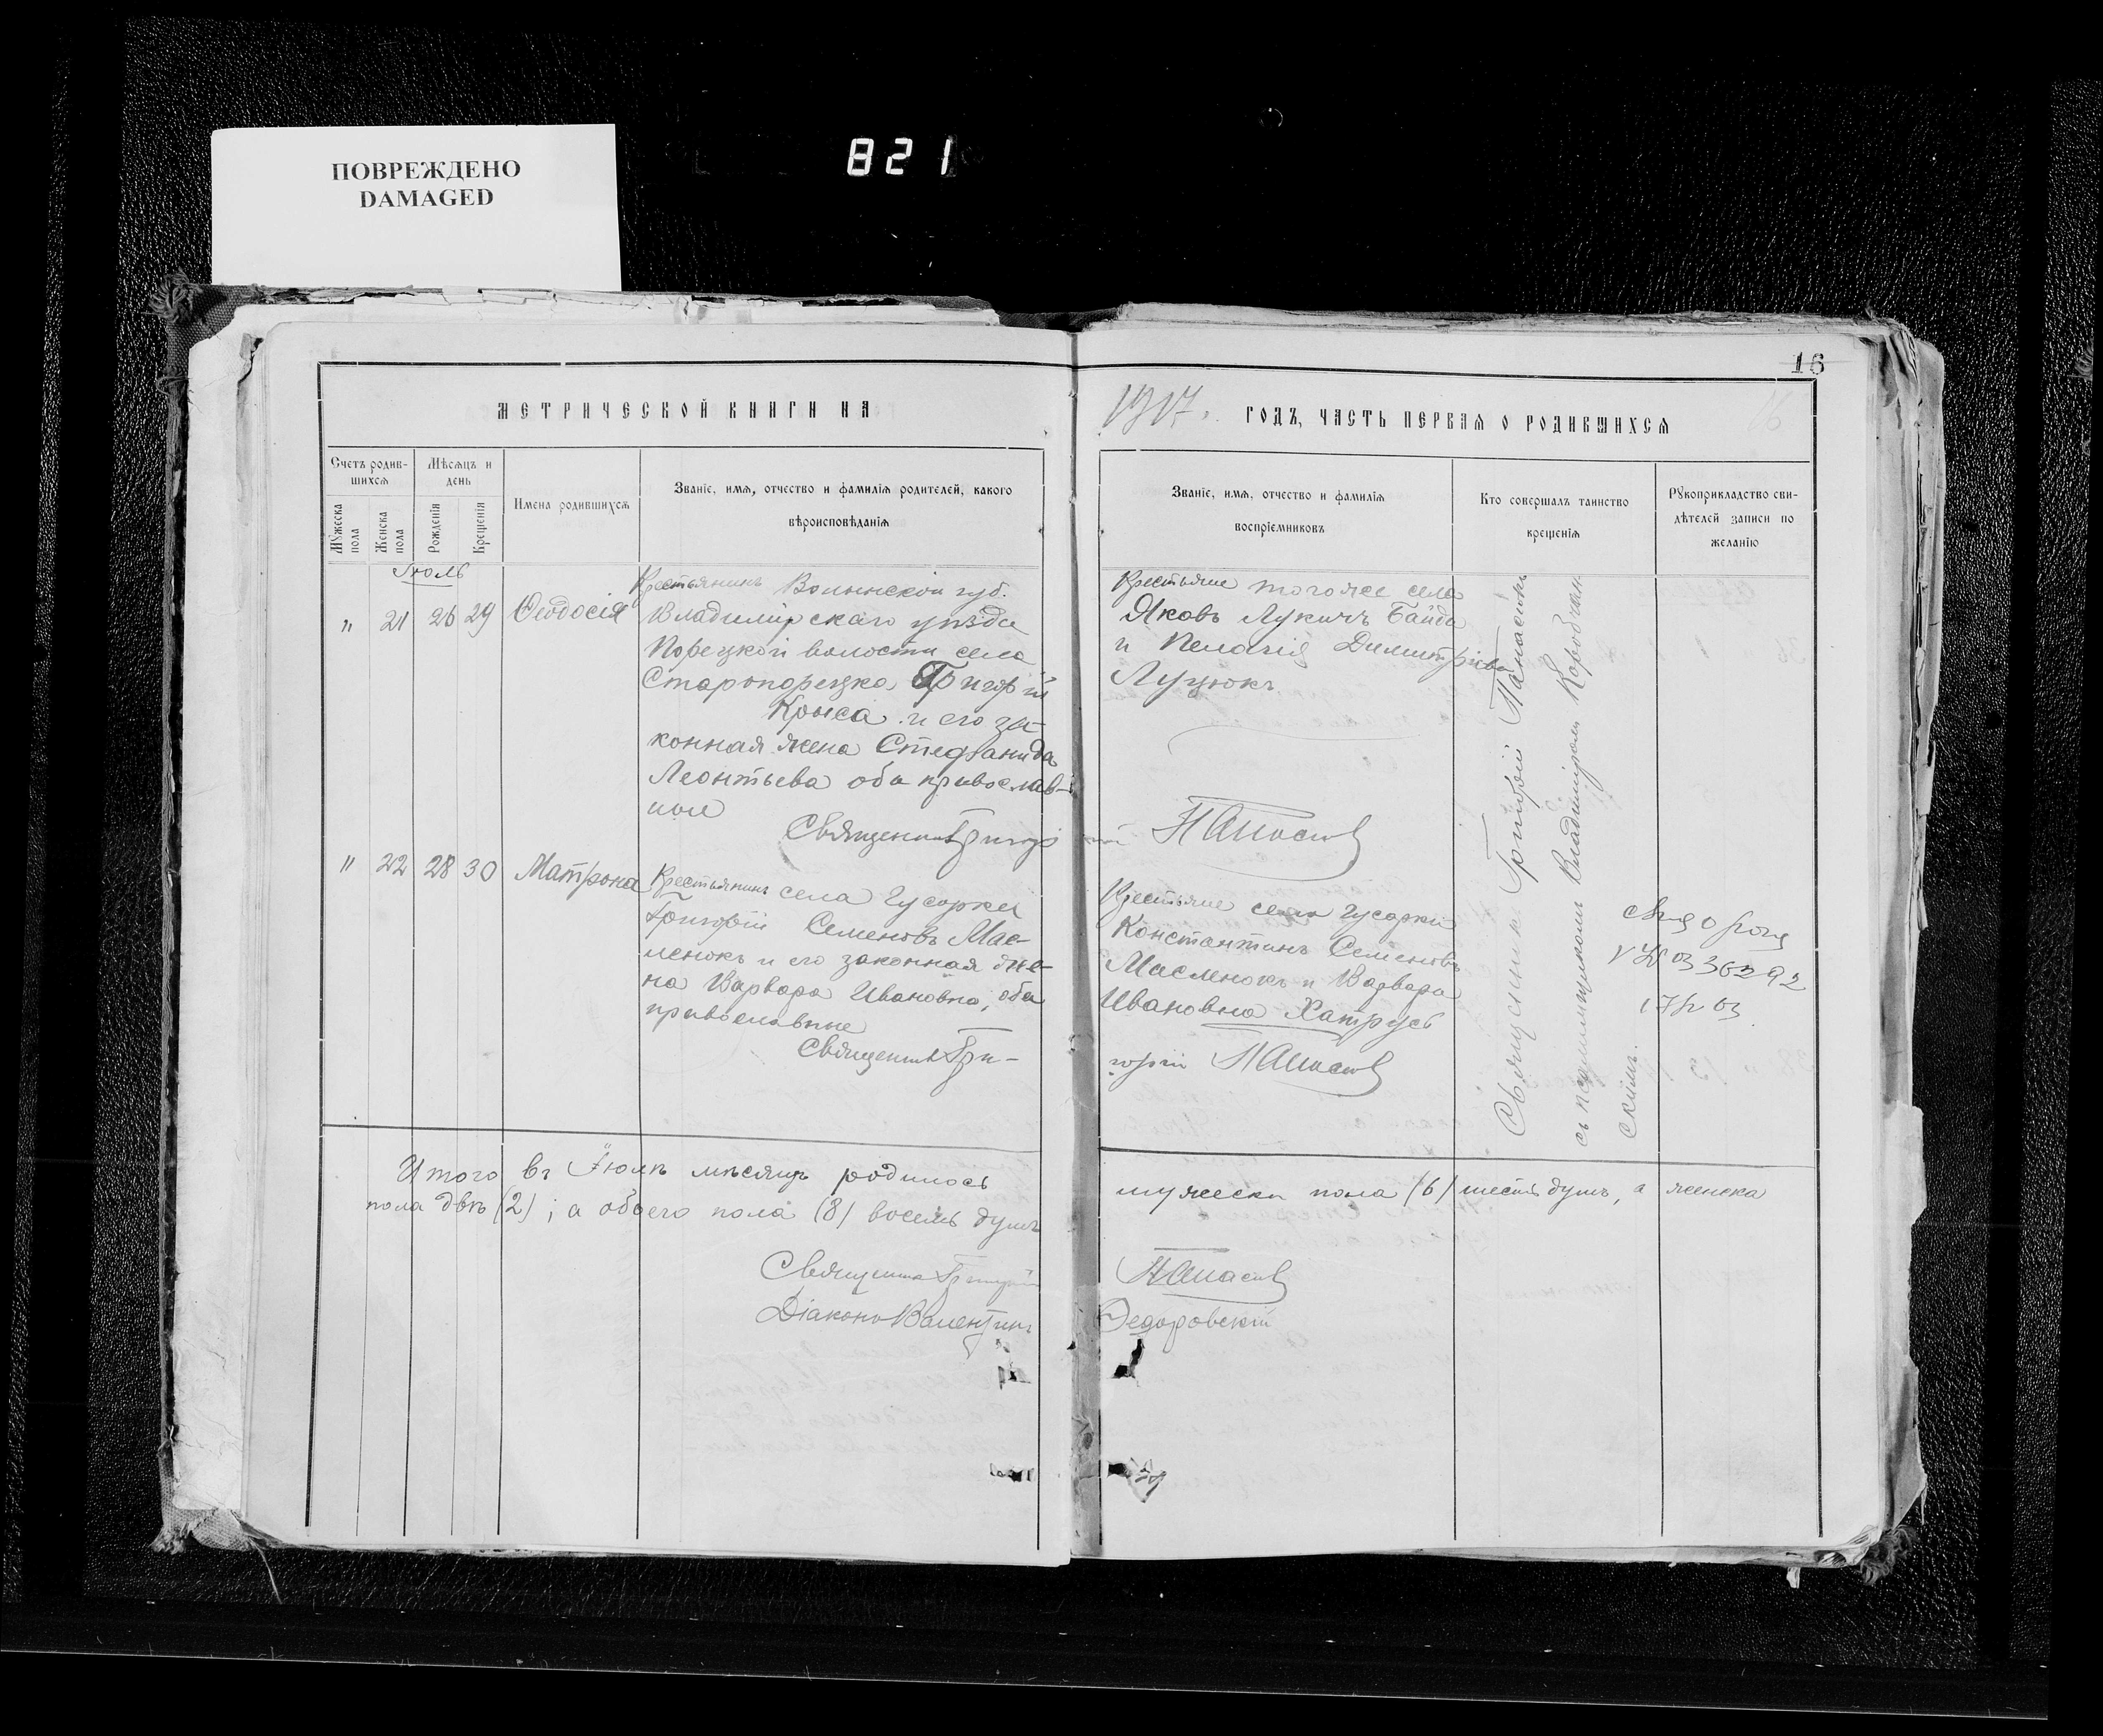 ПОВРЕЖДЕНО
DAMAGED
821
16
МЕТРИЧЕСКОЙ КНИГИ НА
1917. ГОДЪ, ЧАСТЬ ПЕРВАЯ О РОДИВШИХСЯ
Счетъ родив-
шихся
Мѣсяцъ и
день
Мужеска
пола
Женска
пола
Рожденія
Крещенія
Имена родившихся
Званіе, имя, отчество и фамилія родителей, какого
вѣроисповѣданія
Званіе, имя, отчество и фамилія
воспріемниковъ
Кто совершалъ таинство
крещенія
Рукоприкладство сви-
дѣтелей записи по
желанію
Іюль
" 21 26 29 Ѳеодосія
Крестьянинъ Волынской губ.
Владимірскаго уѣзда
Порецкой волости села
Старопорецка Григорій
Крыса и его за-
конная жена Стефанида
Леонтьева оба православ-
ные
Священникъ Григорій
Крестьяне того же села
Яковъ Лукичъ Байда
и Пелагія Димитріева
Луцюкъ
" 22 28 30 Матрона
Крестьянинъ села Гусарки
Григорій Семеновъ Мас-
ленокъ и его законная же-
на Варвара Ивановна, оба
православные
Священникъ Гри-
Крестьяне села Гусарки
Константинъ Семеновъ
Масленокъ и Варвара
Ивановна Хатрусь
горій
Священникъ Григорій
съ псаломщикомъ Владиміромъ Коробчан-
скимъ.
Итого въ Іюлѣ мѣсяцѣ родилось
мужеска пола (6) шесть душъ, а женска
пола двѣ (2); а обоего пола (8) восемь душъ
Священникъ Григорій
Діаконъ Валентинъ
Федоровскій